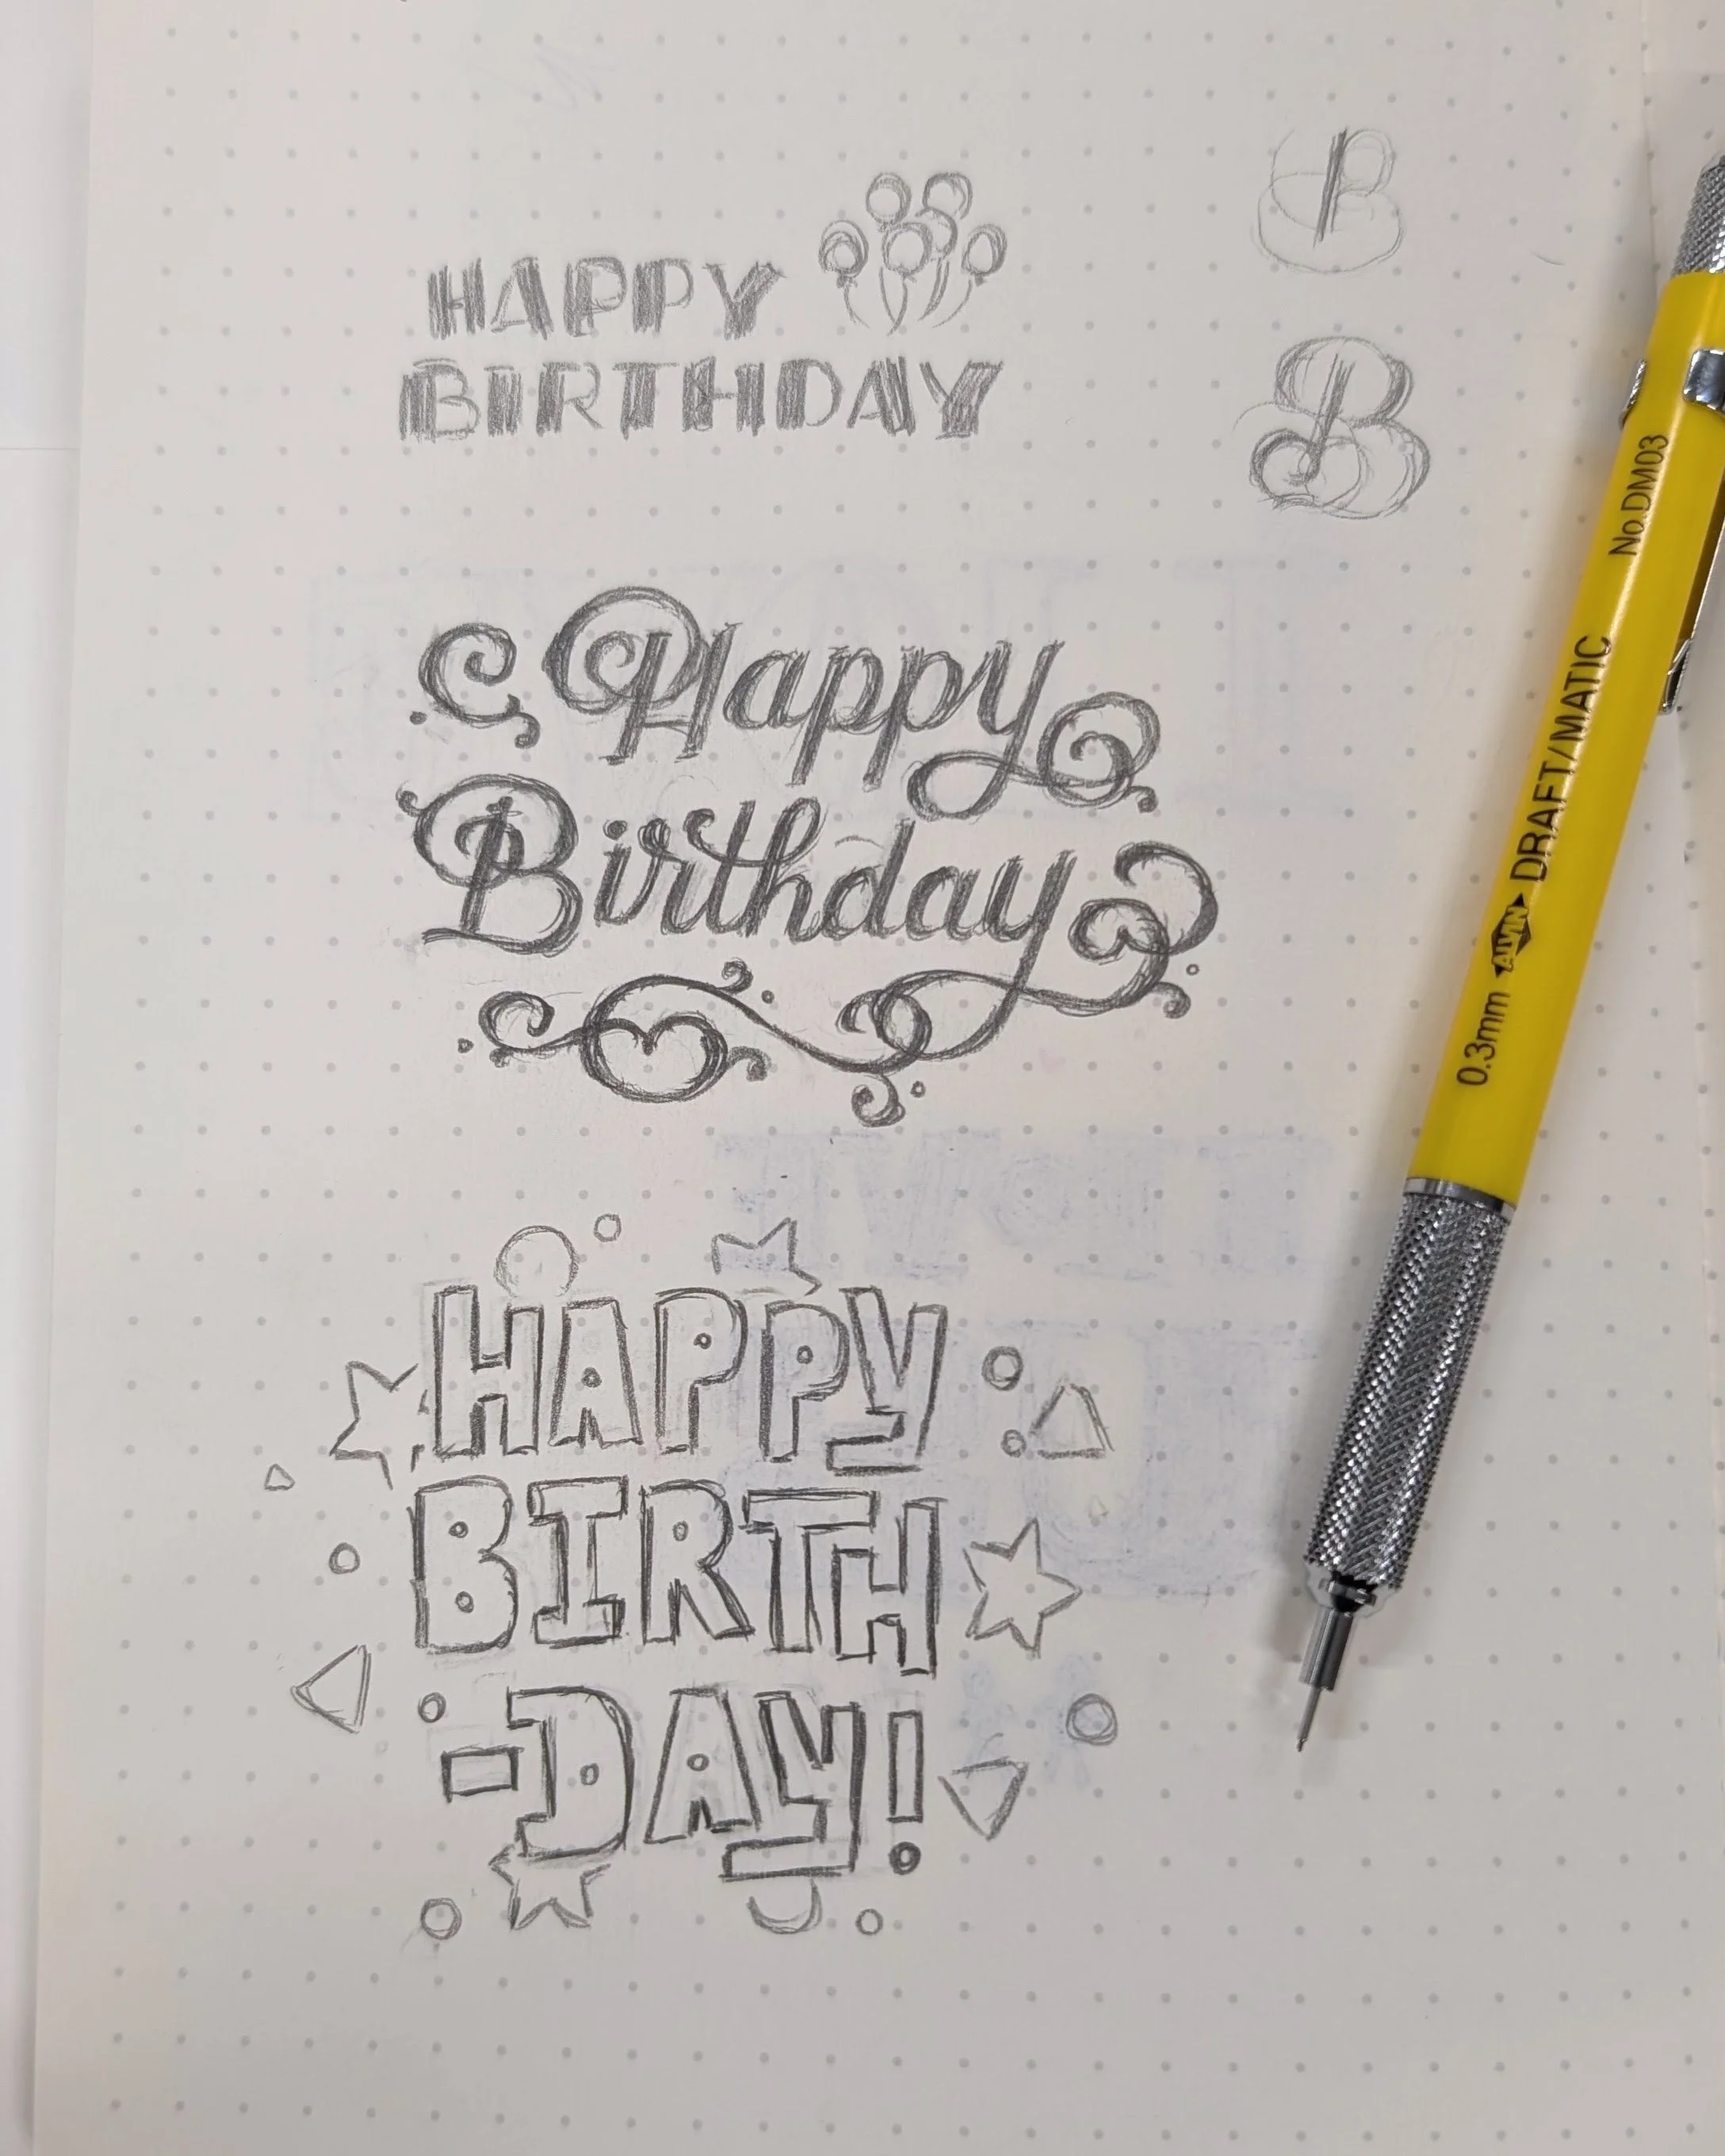 HAPPY
BIRTHDAY
B
B
Happy
Birthday
HAPPY
BIRTH
-DAY!
0.3mm ALVIN DRAFT/MATIC No.DM03